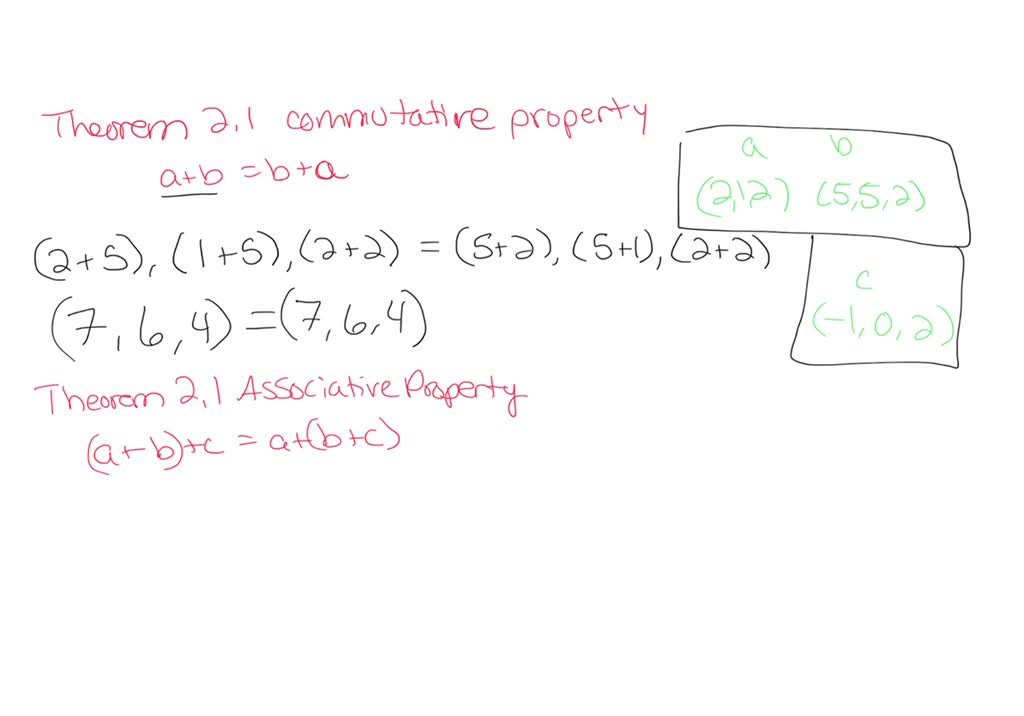 Theorem 2.1 commutative property
a+b = b+a
a b
(2,1,2) (5,5,2)
(2+5), (1+5), (2+2) = (5+2), (5+1), (2+2)
c
(-1, 0, 2)
(7, 6, 4) = (7, 6, 4)
Theorem 2.1 Associative Property
(a+b)+c = a+(b+c)